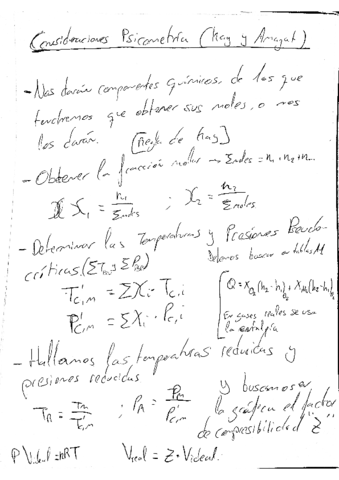 Consideraciones Psicometría (Kay y Amagat)
- Nos darán componentes químicos, de los que
tendremos que obtener sus moles, o nos
los darán. [Regla de Kay]
- Obtener la fracción molar → Σmoles = n₁ + n₂ + n...
X₁ = n₁/Σmoles ; X₂ = n₂/Σmoles
- Determinar las Temperaturas y Presiones Pseudo
críticas. Debemos buscar en tablas
T'c,m = Σxᵢ · Tc,i
P'c,m = Σxᵢ · Pc,i
En gases reales se usa
la entalpía
- Hallamos las temperaturas reducidas y
presiones reducidas y buscamos en
TR = Tm/T'c,m ; PR = Pm/P'c,m la gráfica el factor
de compresibilidad "Z"
P Videal = nRT Vreal = Z · Videal